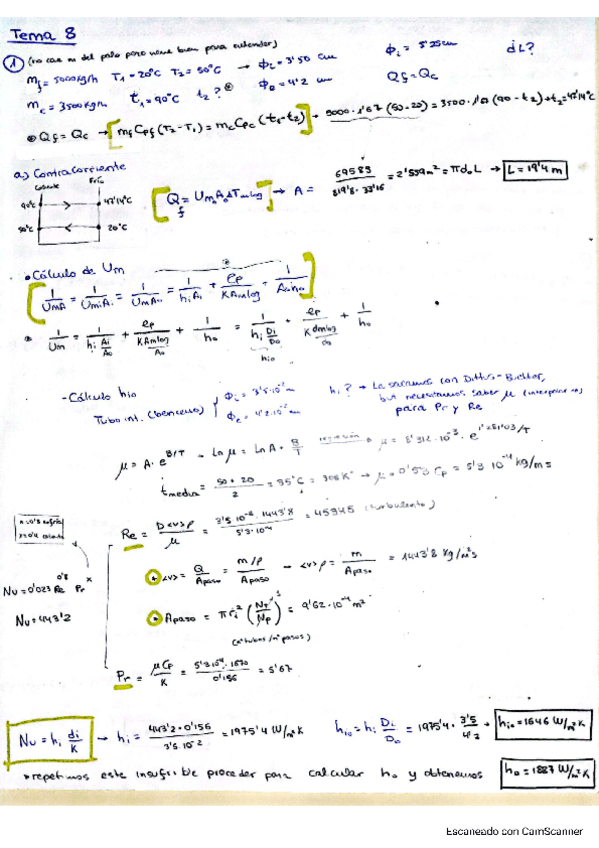 Tema 8
① (no cae ni del palo pero viene bien para entender)
ṁf = 5000 kg/h T1 = 20°C T2 = 50°C → Φi = 3'50 cm Φi = 5'25 cm ¿L?
ṁc = 3500 kg/h t1 = 90°C t2? Φe = 4'2 cm Qf = Qc
Qf = Qc → [mf Cpf (T2 - T1) = mc Cpc (t1 - t2)]
a) Contracorriente
Caliente Fría
90°C 47'14°C
50°C 20°C
[Q = Um Ao ΔTmlog] → A = 69583 / (819'8 · 33'16) = 2'559 m² = π do L → L = 19'4 m
• Cálculo de Um
[1/UmA = 1/UmiAi = 1/UmAo = 1/hiAi + ep/KAmlog + 1/Aoho]
1/Um = 1/(hi Ai/Ao) + ep/(K Amlog/Ao) + 1/ho = 1/(hi Di/Do) + ep/(K dmlog/do) + 1/ho
hio
- Cálculo hio
Tubo int. (benceno) Φi = 3'5·10⁻² m
Φe = 4'2·10⁻² m
hi? → La sacamos con Dittus-Boelter,
but necesitamos saber μ
para Pr y Re
μ = A · e^(B/T) → Ln μ = Ln A + B/T
tmedia = (50 + 20)/2 = 35°C = 308 K
Re = D<v>ρ/μ = (3'5·10⁻² · 1443'8)/(5'3·10⁻⁴) = 45945 (turbulento)
<v> = Q/Apaso = (m/ρ)/Apaso → <v>ρ = m/Apaso = 1443'8 kg/m²s
Nu = 0'023 Re^0'8 Pr^x
Nu = 443'2
Apaso = π ri² (NT/Np) = 9'62·10⁻⁴ m²
(nº tubos / nº pasos)
Pr = μCp/K = (5'3·10⁻⁴ · 1670)/0'156 = 5'67
Nu = hi di/K → hi = (443'2 · 0'156)/(3'5·10⁻²) = 1975'4 W/m²K hio = hi Di/Do = 1975'4 · 3'5/4'2 → hio = 1646 W/m²K
* repetimos este insufrible proceder para calcular ho y obtenemos ho = 1887 W/m²K
Escaneado con CamScanner